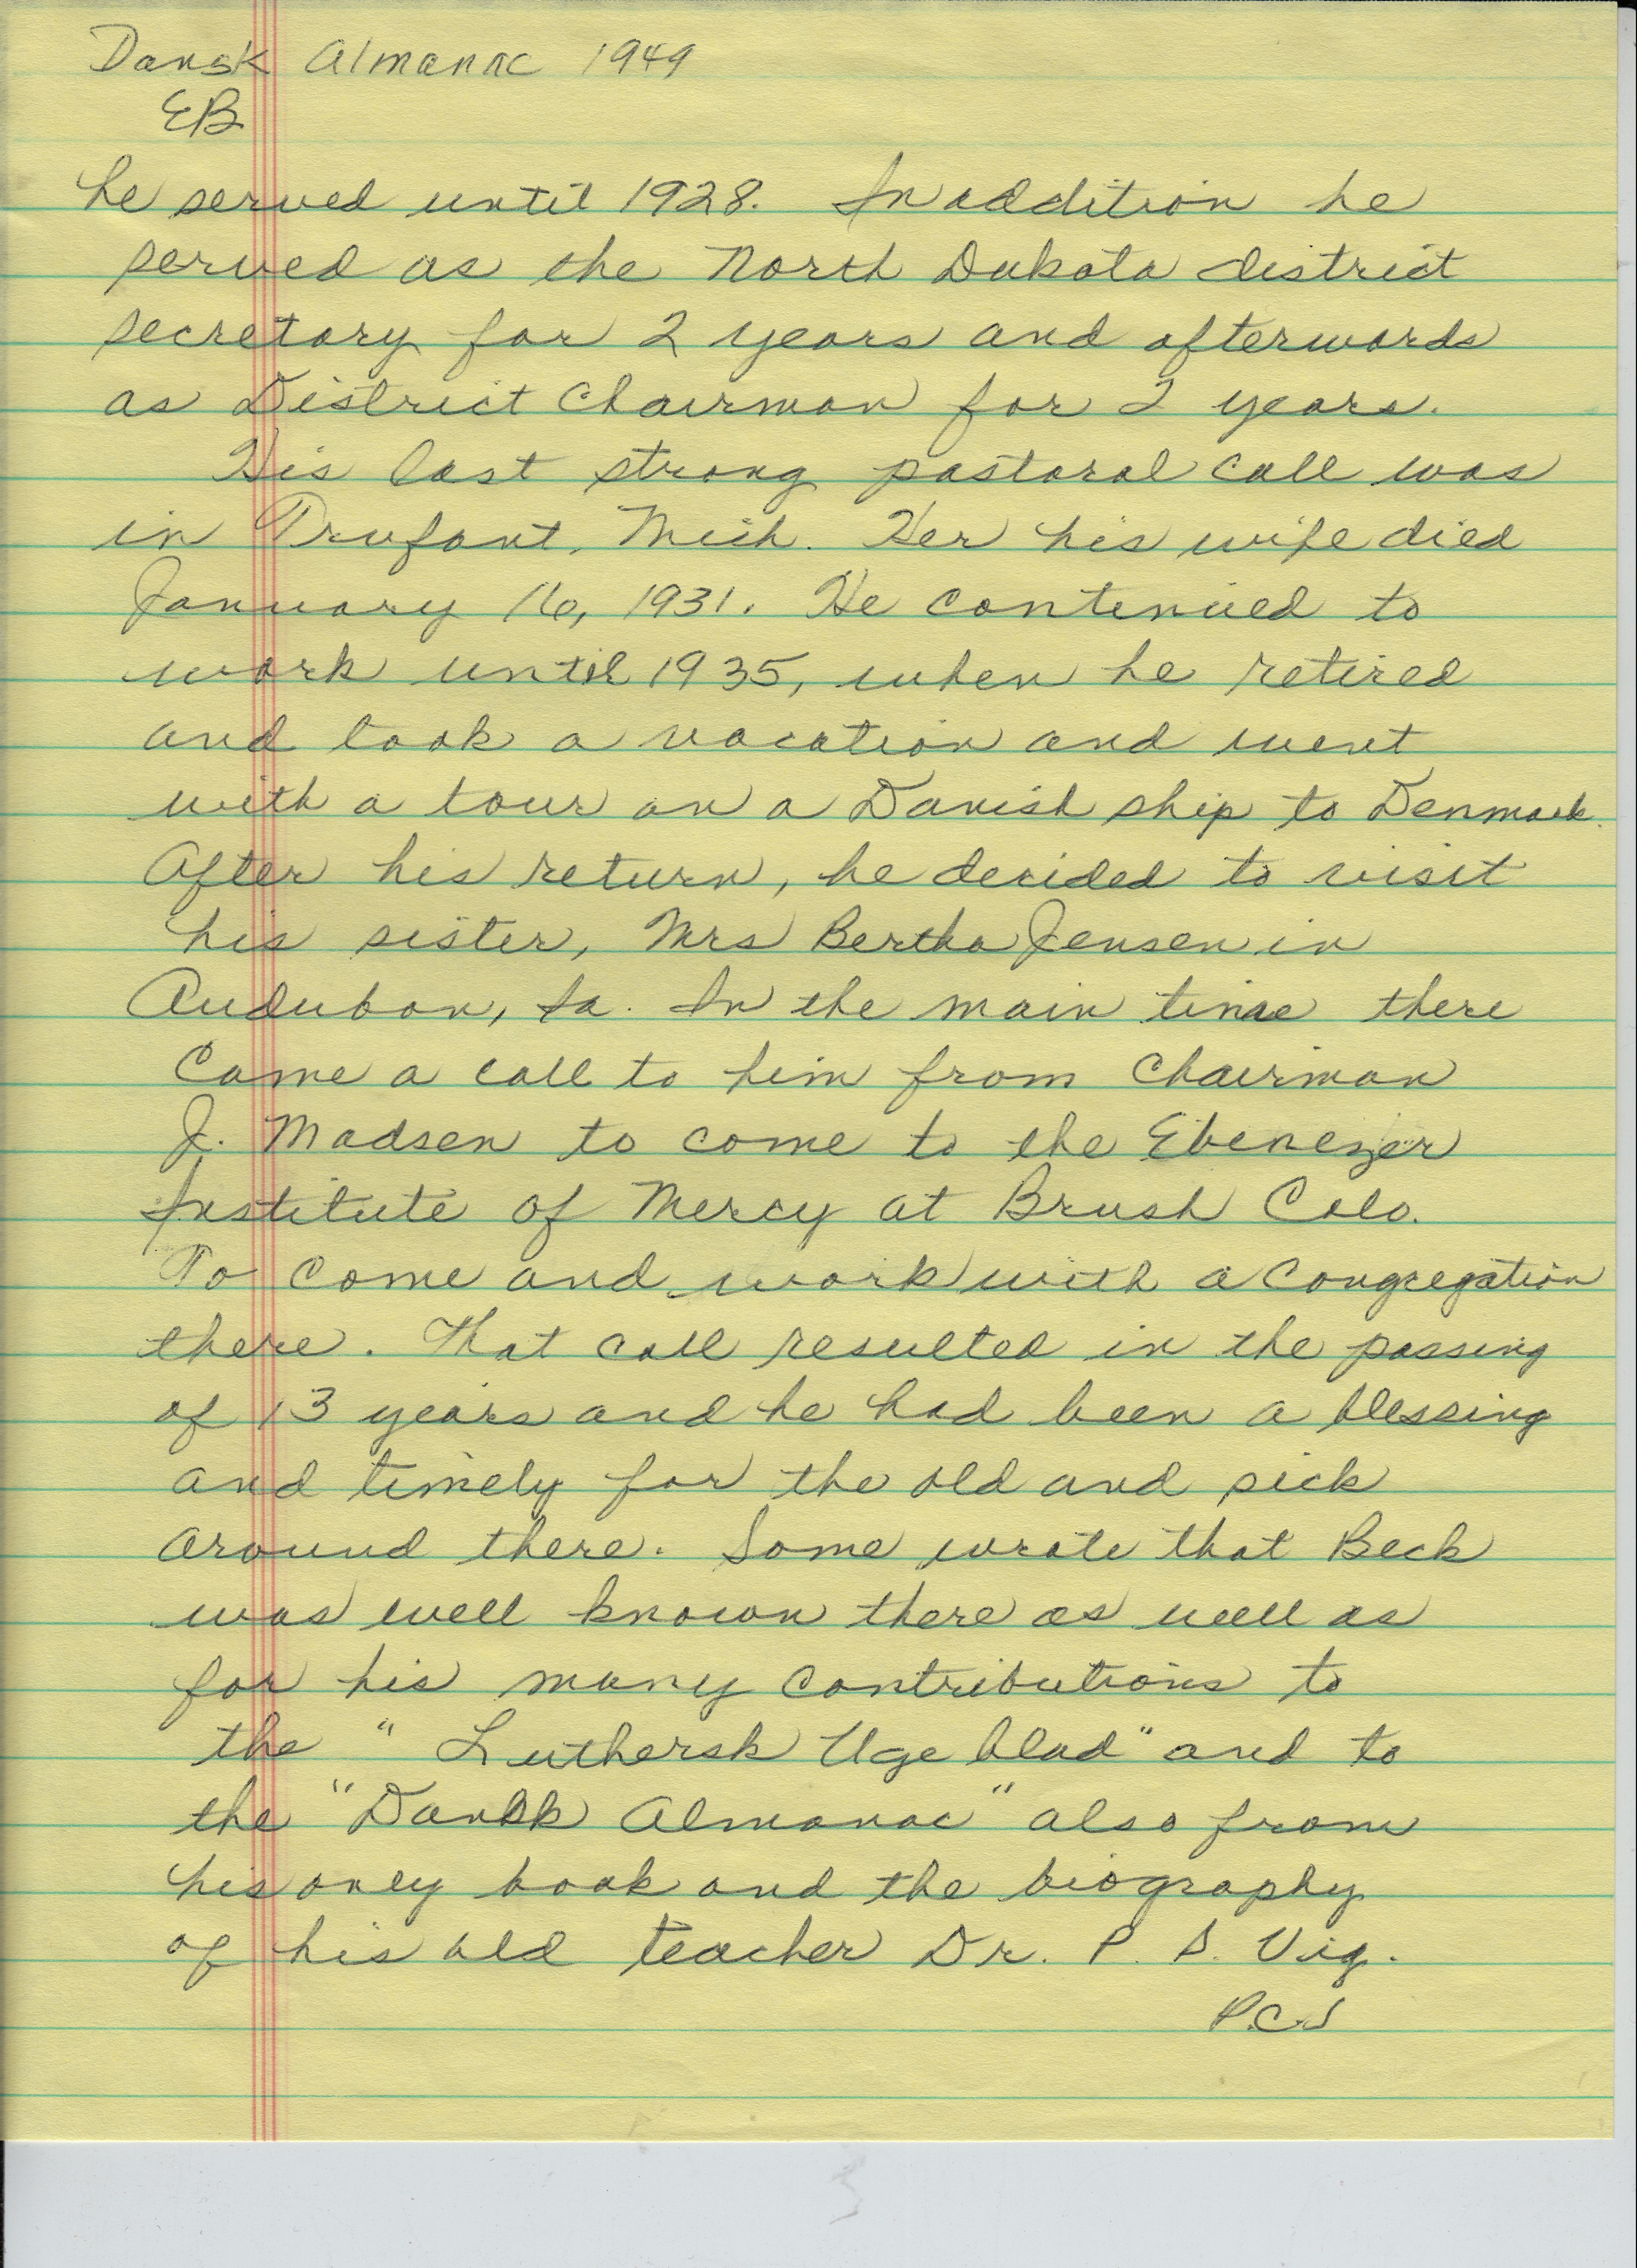 Dansk Almanac 1949
EB
he served until 1928. In addition he
served as the North Dakota district
secretary for 2 years and afterwords
as District Chairman for 2 years.
His last strong pastoral call was
in Trufant, Mich. Her his wife died
January 16, 1931. He continued to
work until 1935, when he retired
and took a vacation and went
with a tour on a Danish ship to Denmark.
After his return, he decided to visit
his sister, Mrs Bertha Jensen in
Audubon, Ia. In the main time there
came a call to him from Chairman
J. Madsen to come to the Ebenezer
Institute of Mercy at Brush Colo.
To come and work with a congregation
there. That call resulted in the passing
of 13 years and he had been a blessing
and timely for the old and sick
around there. Some wrote that Beck
was well known there as well as
for his many contributions to
the "Luthersk Uge blad" and to
the "Dansk Almanac" also from
his only book and the biography
of his old teacher Dr. P. S. Vig.
P.C.J